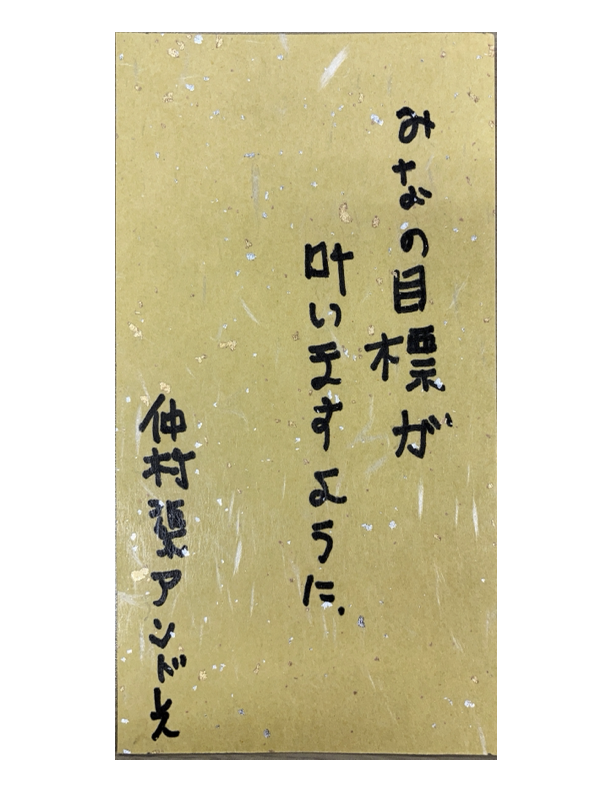 みなの目標が
叶いますように.
仲村渠アンドレ